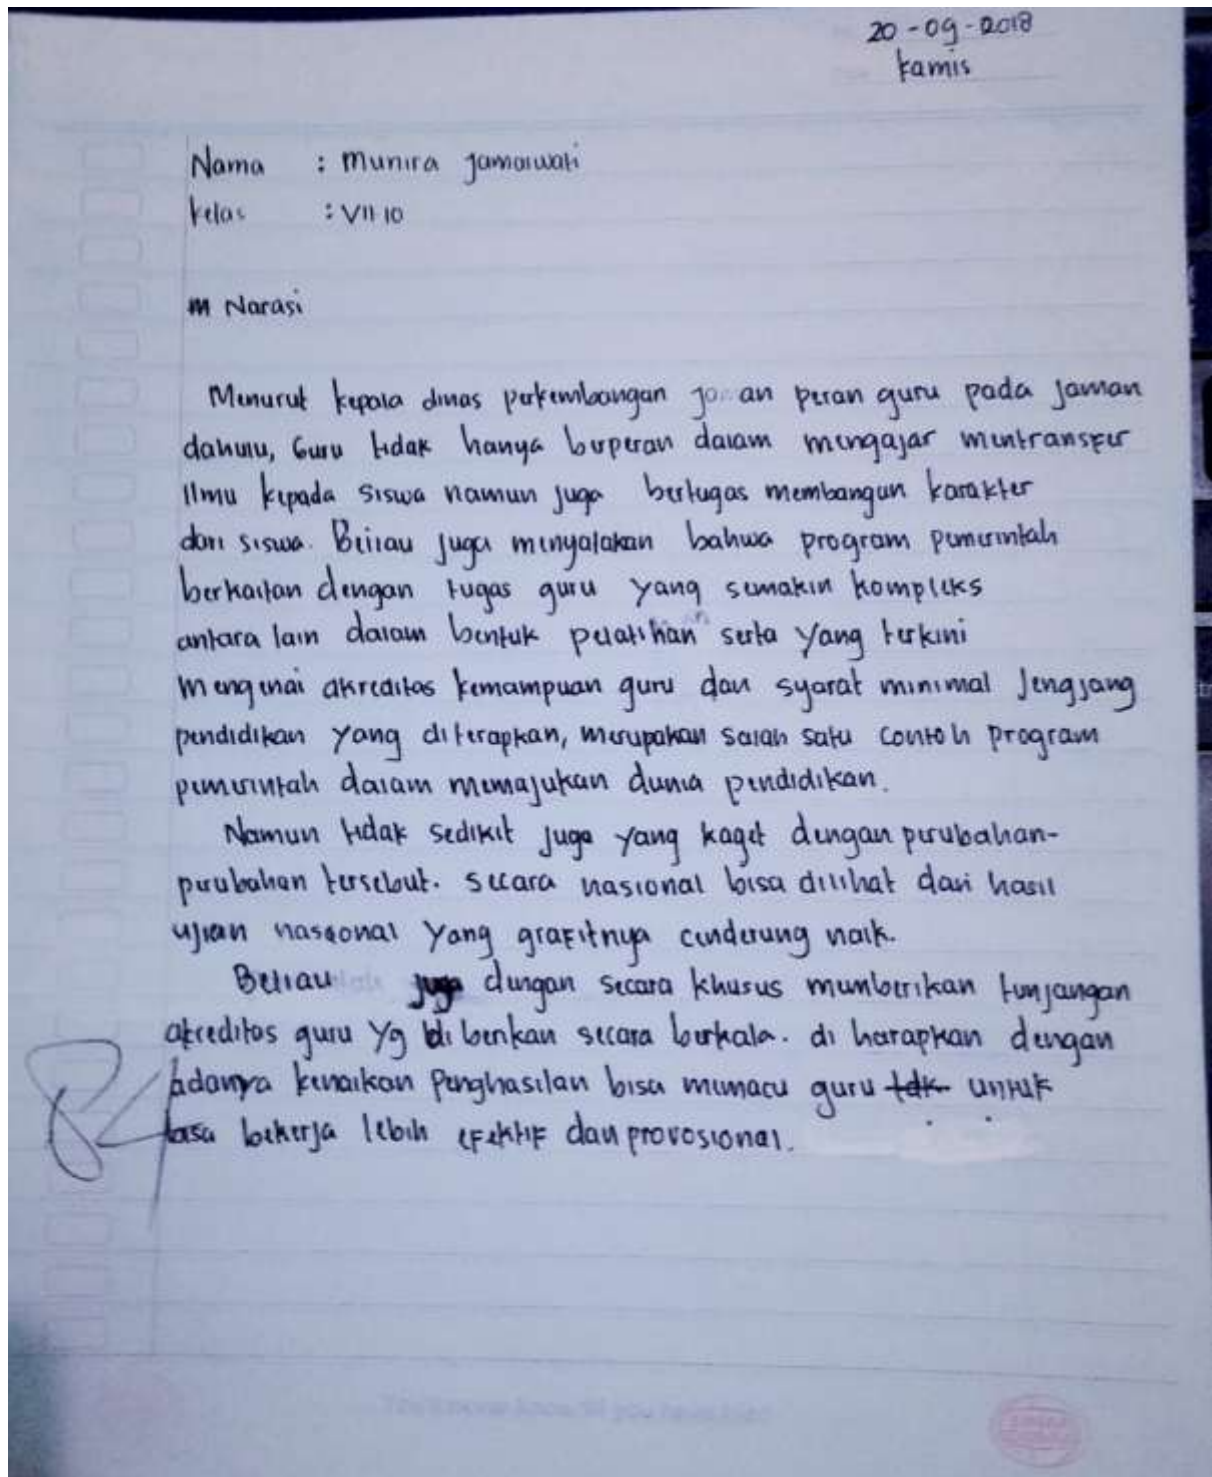 20-09-2018
kamis
Nama : Munira Jamaiwati
kelas : VII 10
Narasi
Menurut kepala dinas perkembangan peran guru pada Jaman
dahulu, Guru tidak hanya berperan dalam mengajar mentransfer
Ilmu kepada siswa namun juga bertugas membangun karakter
dari siswa. Beliau juga menyatakan bahwa program pemerintah
berkaitan dengan tugas guru yang semakin kompleks
antara lain dalam bentuk pelatihan serta yang terkini
Mengenai akreditas kemampuan guru dan syarat minimal Jengjang
pendidikan yang diterapkan, merupakan salah satu contoh program
pemerintah dalam memajukan dunia pendidikan.
Namun tidak sedikit juga yang kaget dengan perubahan-
perubahan tersebut. secara nasional bisa dilihat dari hasil
ujian nasional yang grafitnya cenderung naik.
Beliau juga dengan secara khusus memberikan tunjangan
akreditas guru yg di berikan secara berkala. di harapkan dengan
adanya kenaikan Penghasilan bisa memacu guru tdk untuk
bisa bekerja lebih efektif dan provosional.